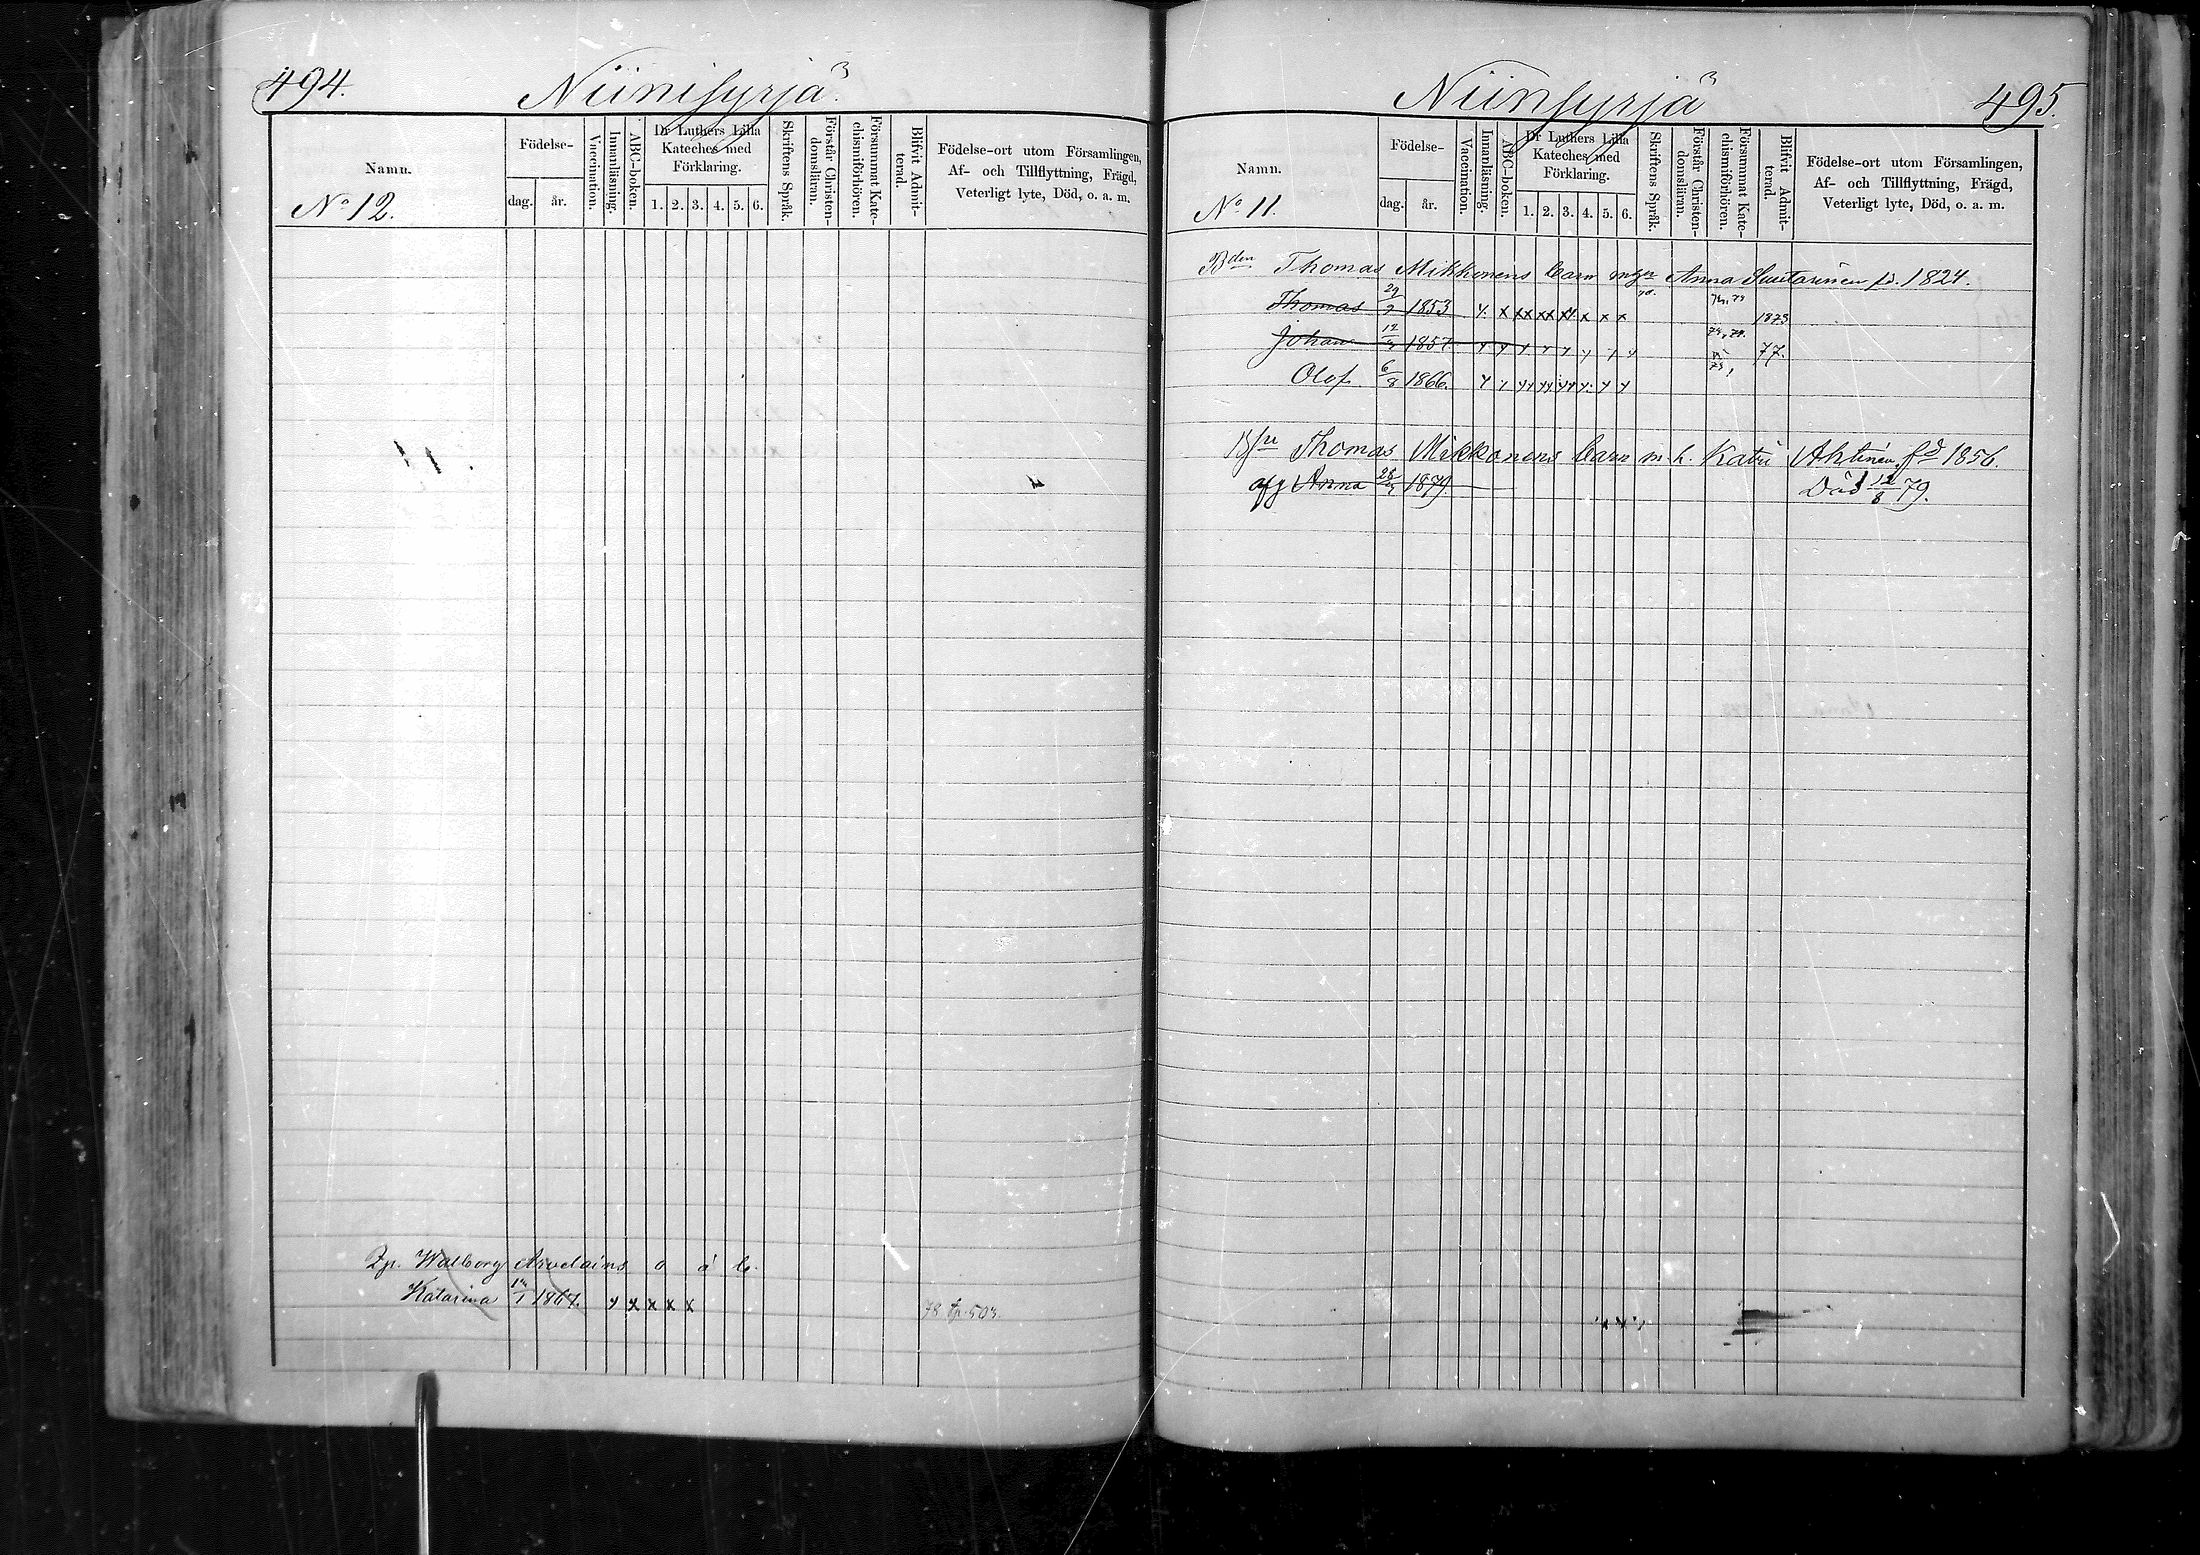 494.
Niinisyrjä
Namn.
No 12.
Födelse-
dag.
år.
Vaccination.
Innanläsning.
ABC-boken.
Dr Luthers Lilla
Kateches med
Förklaring.
1. 2. 3. 4. 5. 6.
Skriftens Språk.
Förstår Christen-
domsläran.
Försummat Kate-
chismiförhören.
Blifvit Admit-
terad.
Födelse-ort utom Församlingen,
Af- och Tillflyttning, Frägd,
Veterligt lyte, Död, o. a. m.
Walborg
Katarina 1867. x x x x
78 503.
495.
Niinsyrjä
Namn.
No 11.
Födelse-
dag.
år.
Vaccination.
Innanläsning.
ABC-boken.
Dr Luthers Lilla
Kateches med
Förklaring.
1. 2. 3. 4. 5. 6.
Skriftens Språk.
Förstår Christen-
domsläran.
Försummat Kate-
chismiförhören.
Blifvit Admit-
terad.
Födelse-ort utom Församlingen,
Af- och Tillflyttning, Frägd,
Veterligt lyte, Död, o. a. m.
Bden Thomas Mikkonens barn m Anna Suutarinen fd. 1824.
Thomas 1853 x xx xx x x x 1873
Johan 1857 77.
Olof 6/8 1866.
Thomas Mikkonens barn m. h. Katri Ahtinen fd 1856.
Anna 1879. Död 12/8 79.